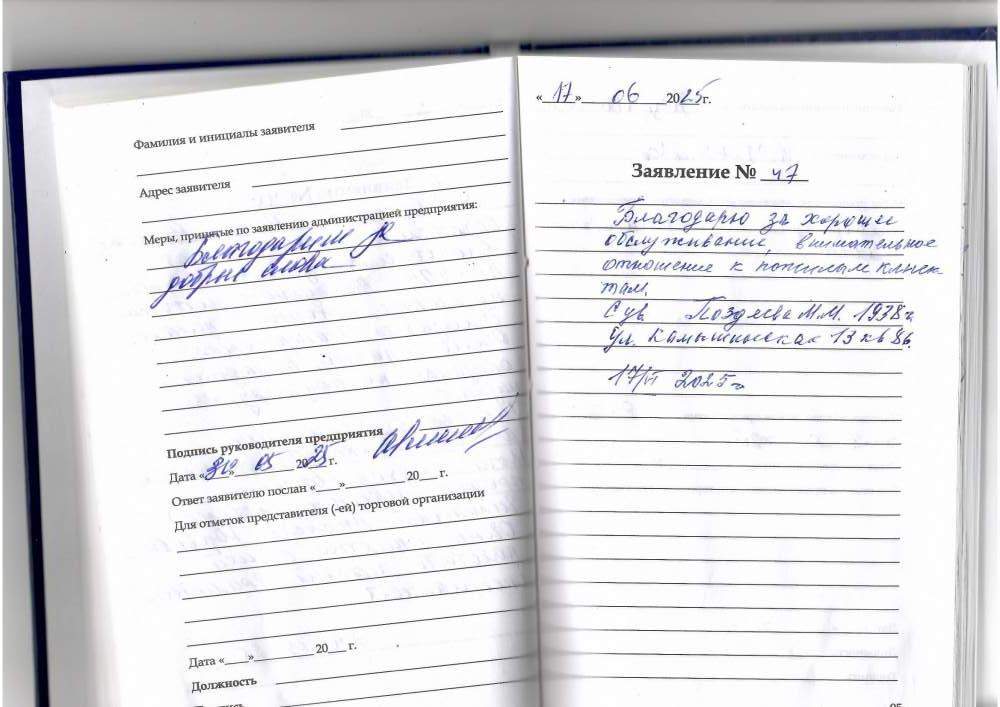 Фамилия и инициалы заявителя
Адрес заявителя
Меры, принятые по заявлению администрацией предприятия:
Благодарение за
добрые слова
Подпись руководителя предприятия
Дата «30» 05 2025 г.
Ответ заявителю послан «___»__________ 20___ г.
Для отметок представителя (-ей) торговой организации
Дата «____»__________ 20___ г.
Должность
«17» 06 2025г.
Заявление № 47
Благодарю за хорошее
обслуживание, внимательное
отношение к пожилым клиен
там.
С ув Поздеева М.М. 1938 г
ул. Камышинская 13 кв 86.
17/VI 2025 г
95